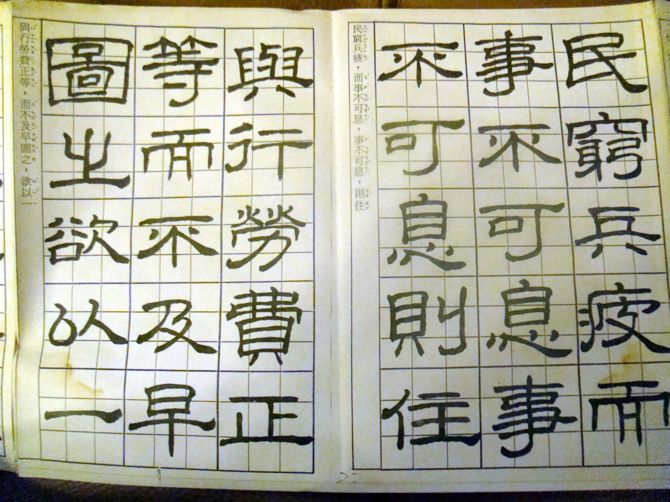 民窮兵疲而
事不可息事
不可息則住
民窮兵疲，而事不可息，事不可息，則住
與行勞費正
等而不及早
圖之欲以一
與行勞費正等，而不及早圖之，欲以一